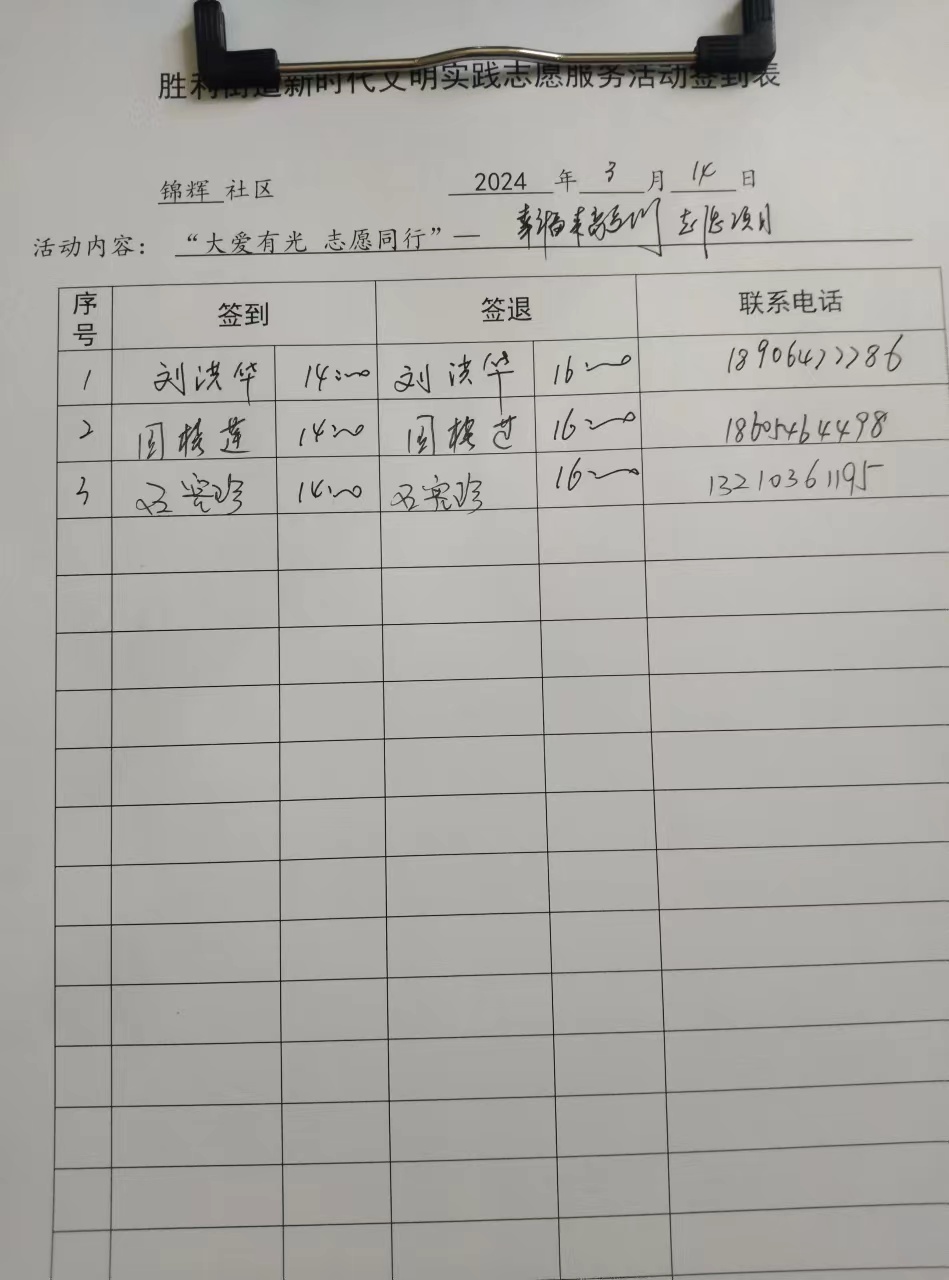 胜利街道新时代文明实践志愿服务活动签到表
锦辉 社区 2024 年 3 月 14 日
活动内容： “大爱有光 志愿同行”— 幸福来敲门 志愿项目
序号 签到 签退 联系电话
1 刘洪华 14:00 刘洪华 16:00 18906477786
2 周桂莲 14:00 周桂莲 16:00 18605464498
3 14:00 16:00 13210361195